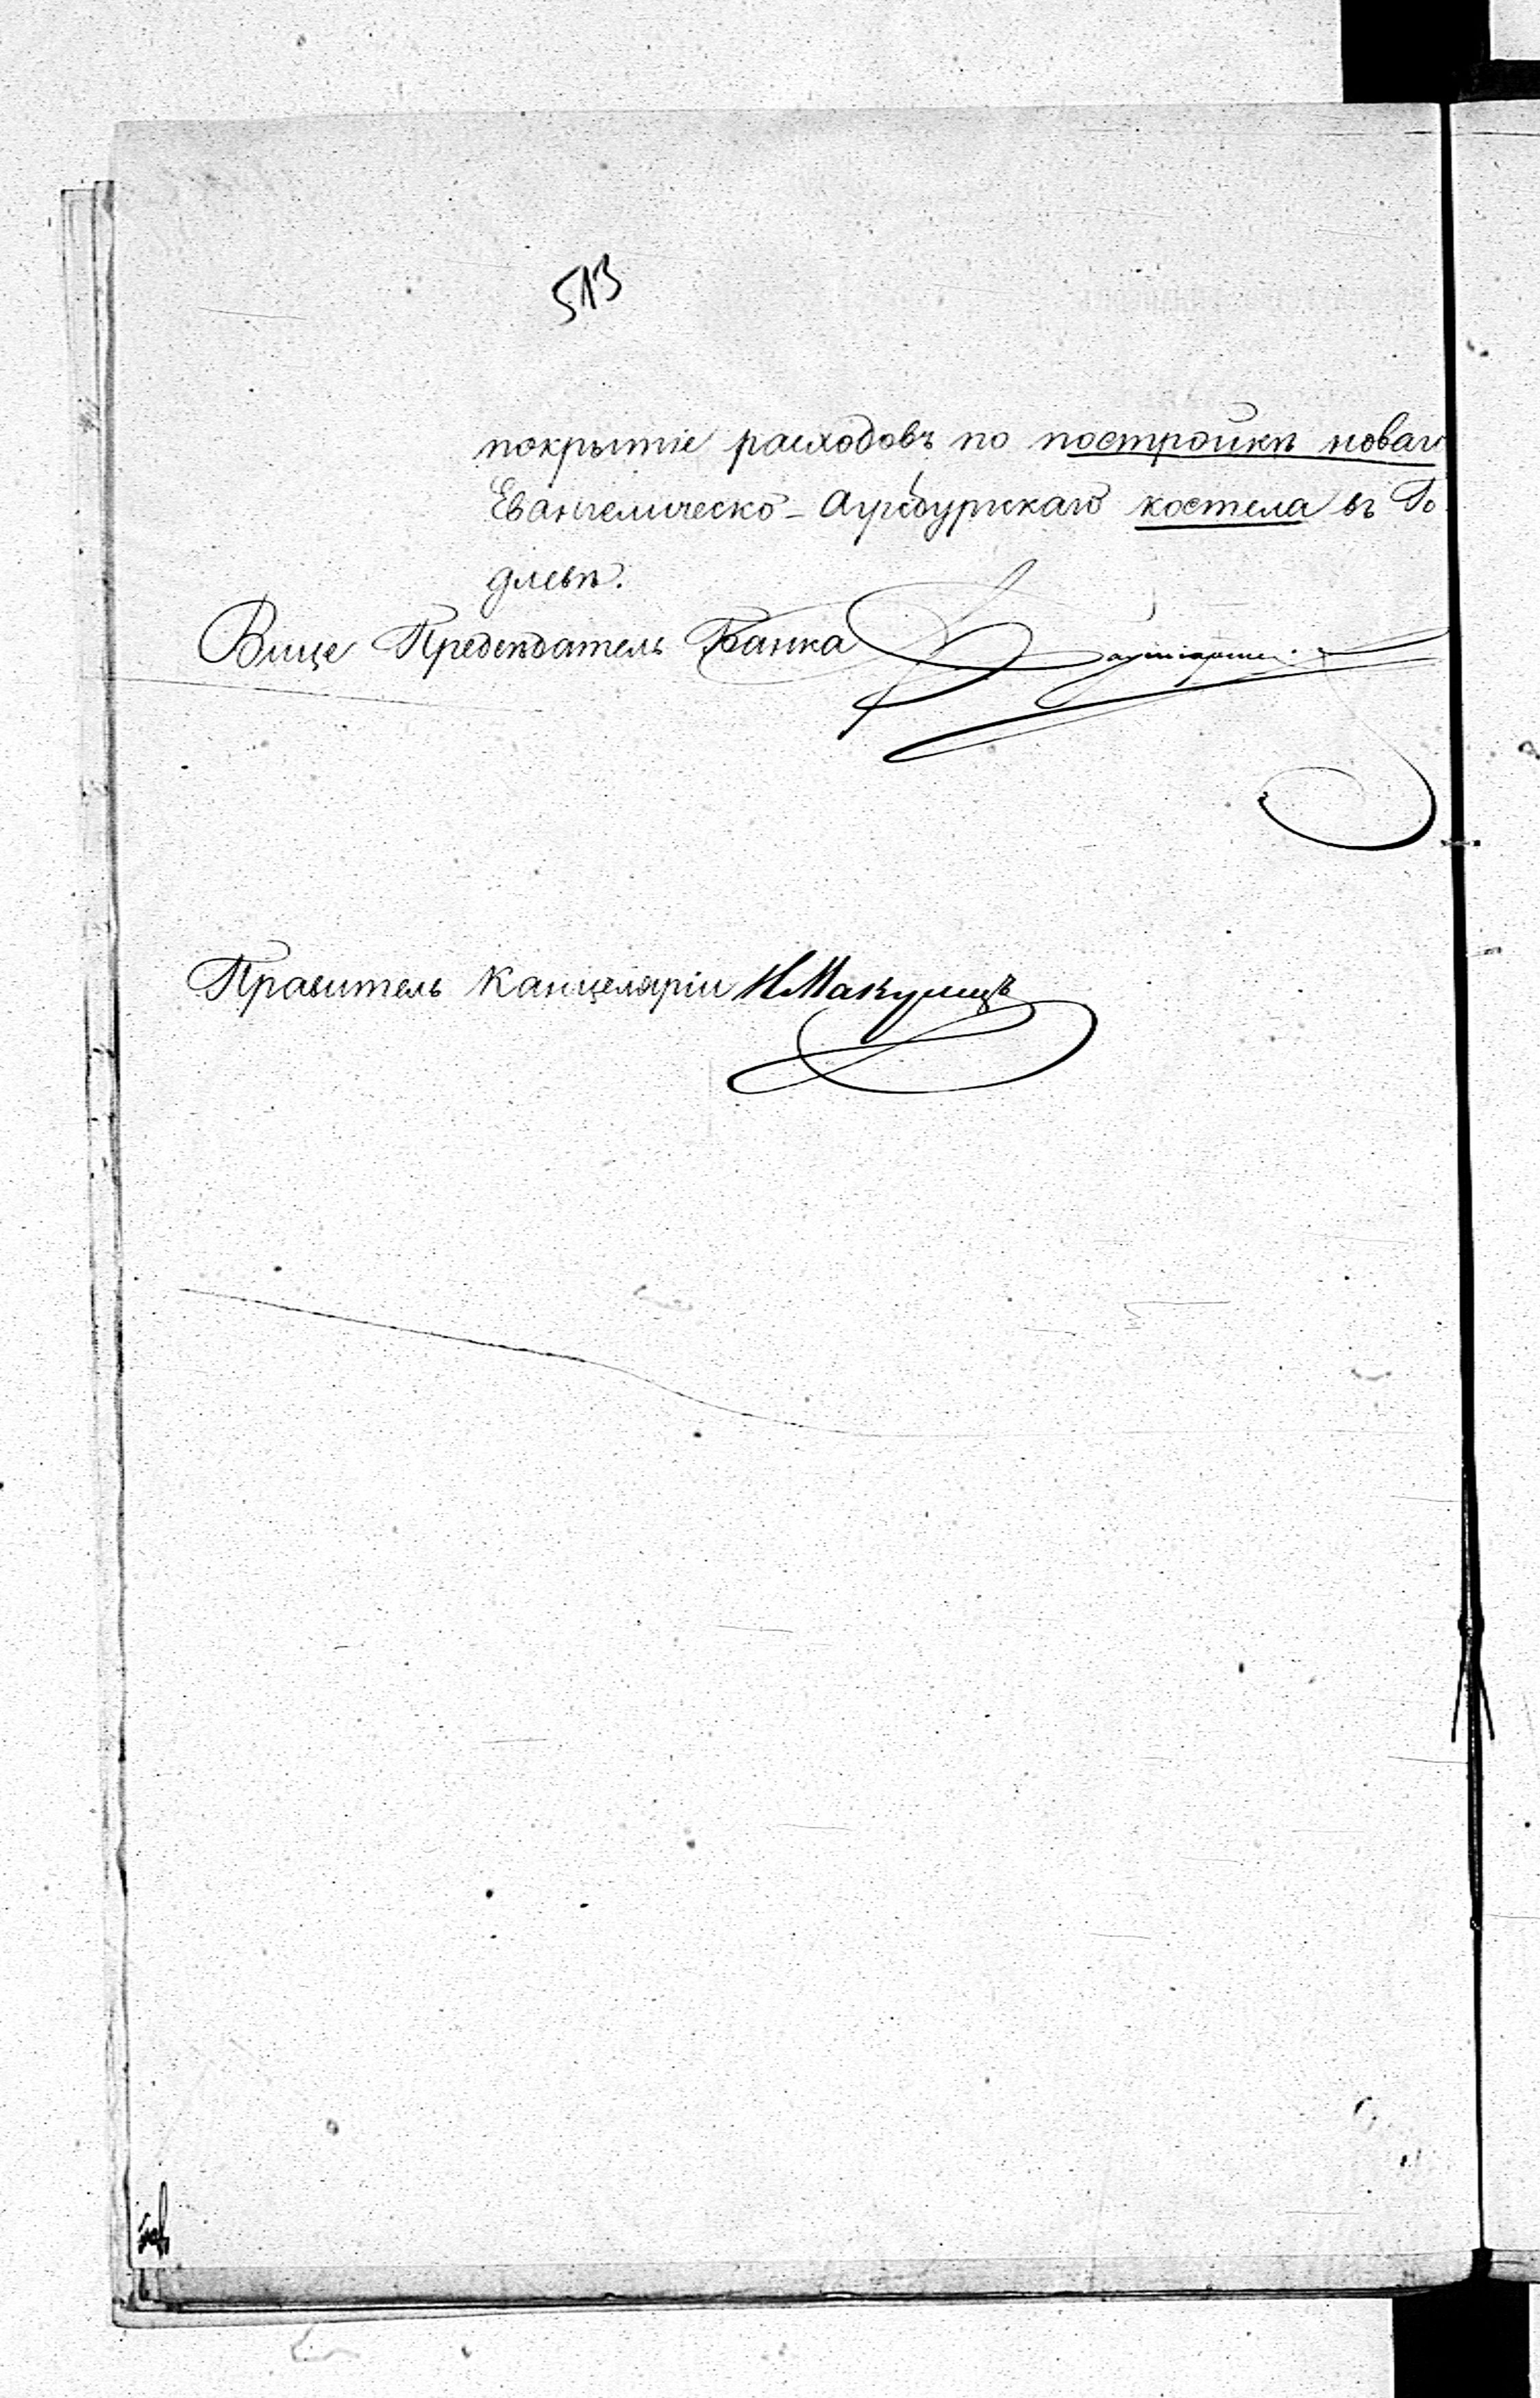 513
покрытіе расходовъ по постройкѣ новаго
Евангелическо-Аугсбургскаго костела въ Го
длевѣ.
Вице Предсѣдатель Банка
Правитель Канцеляріи